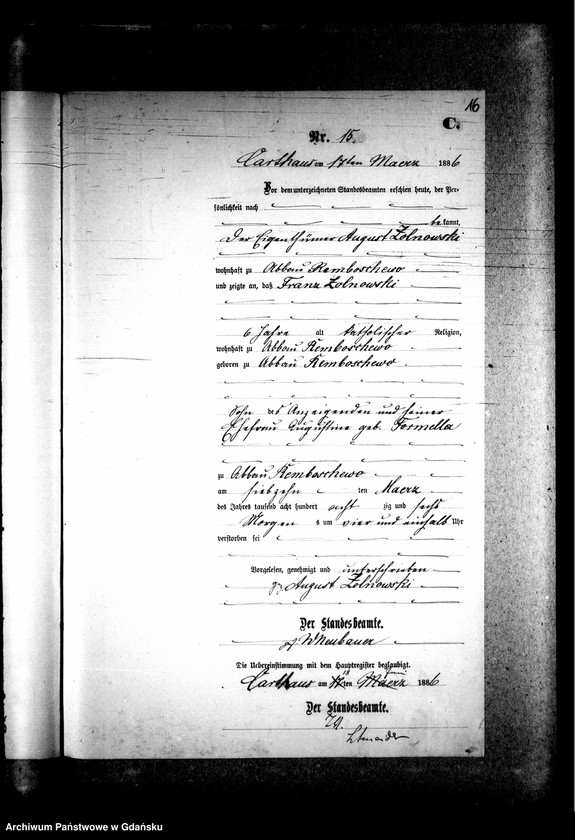 16
C.
Nr. 15.
Carthaus am 17ten Maerz 1886
Vor dem unterzeichneten Standesbeamten erschien heute, der Per-
sönlichkeit nach
bekannt,
der Eigenthümer August Zolnowski
wohnhaft zu Abbau Remboschewo
und zeigte an, daß Franz Zolnowski
6 Jahre alt katholischer Religion,
wohnhaft zu Abbau Remboschewo
geboren zu Abbau Remboschewo
Sohn des Anzeigenden und seiner
Ehefrau Augustine geb. Formella
zu Abbau Remboschewo
am siebzehnten Maerz
des Jahres tausend acht hundert achtzig und sechs
Morgens um vier und einhalb Uhr
verstorben sei
Vorgelesen, genehmigt und unterschrieben
August Zolnowski
Der Standesbeamte.
Neubauer
Die Uebereinstimmung mit dem Hauptregister beglaubigt.
Carthaus am ten 1886
Der Standesbeamte.
Archiwum Państwowe w Gdańsku